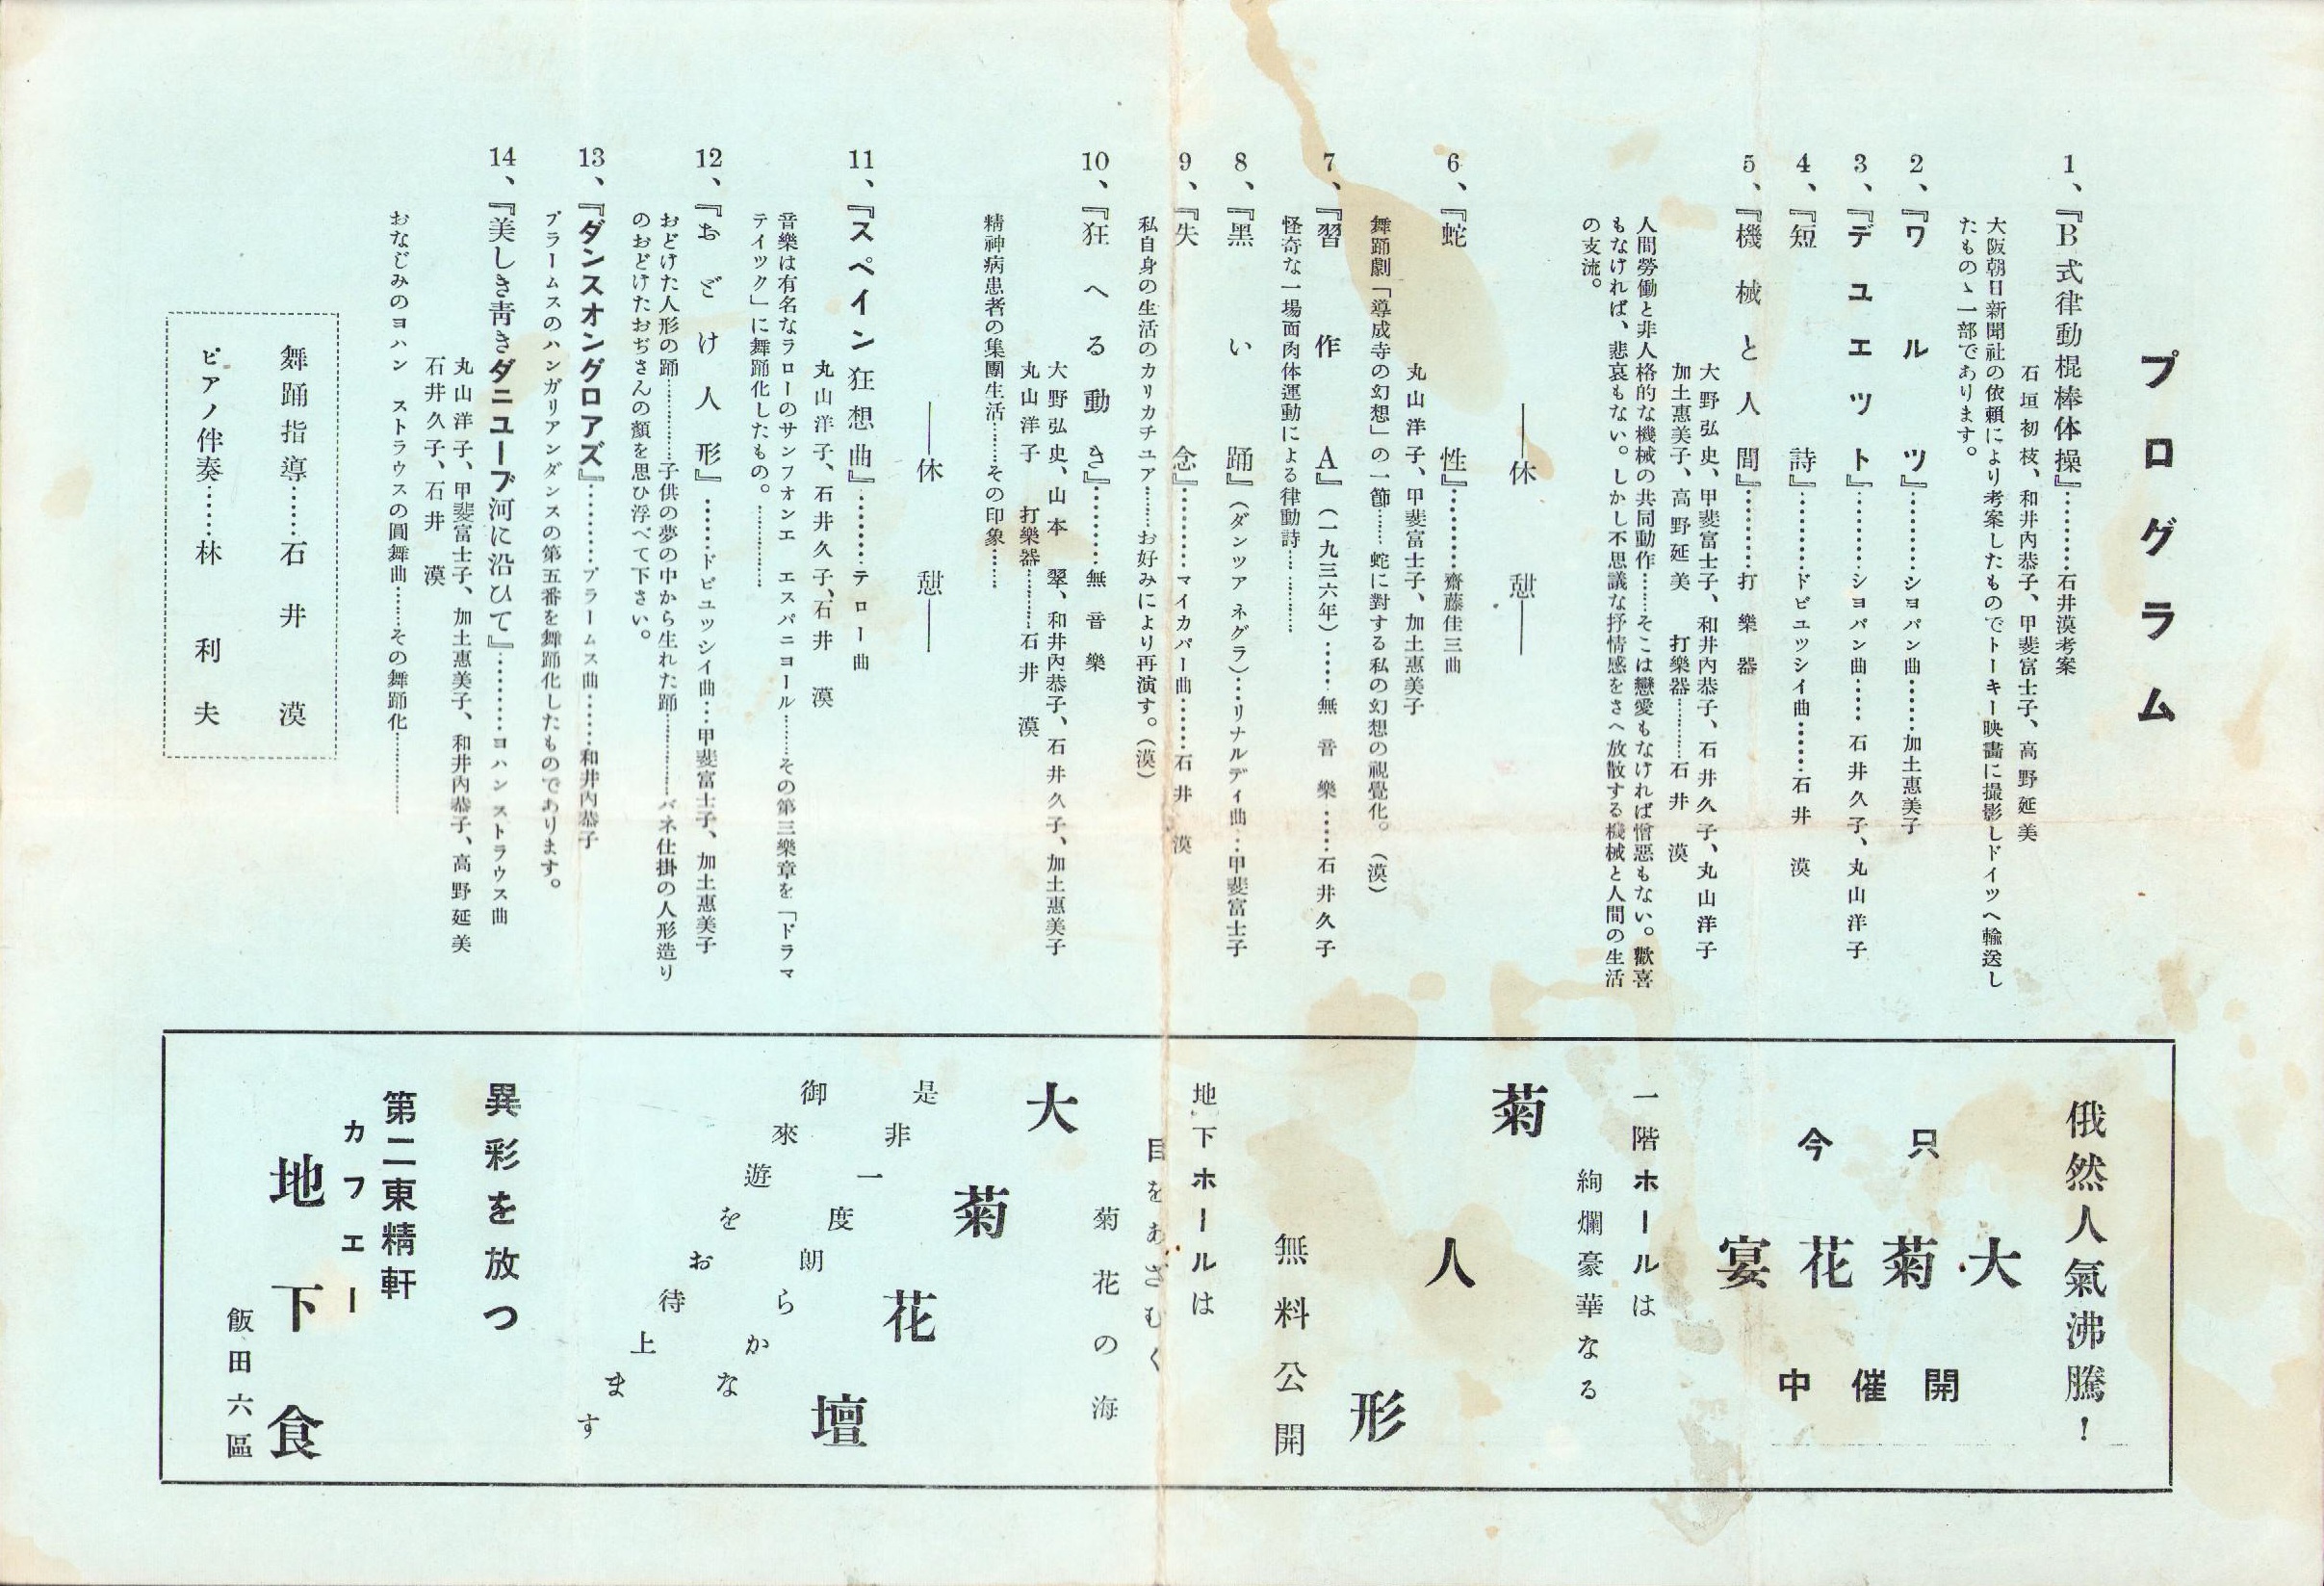 プログラム
1、『B式律動棍棒体操』………石井漠考案
石垣初枝、和井内恭子、甲斐富士子、高野延美
大阪朝日新聞社の依頼により考案したものでトーキー映畵に撮影しドイツへ輸送し
たものゝ一部であります。
2、『ワルツ』………シヨパン曲……加土惠美子
3、『デユエツト』………シヨパン曲……石井久子、丸山洋子
4、『短詩』………ドビユツシイ曲……石井漠
5、『機械と人間』………打樂器
大野弘史、甲斐富士子、和井内恭子、石井久子、丸山洋子
加土惠美子、高野延美　打樂器………石井漠
人間勞働と非人格的な機械の共同動作……そこは戀愛もなければ憎惡もない。歡喜
もなければ、悲哀もない。しかし不思議な抒情感をさへ放散する機械と人間の生活
の支流。
――休憩――
6、『蛇性』………齋藤佳三曲
丸山洋子、甲斐富士子、加土惠美子
舞踊劇「導成寺の幻想」の一節……蛇に對する私の幻想の視覺化。（漠）
7、『習作A』（一九三六年）……無音樂……石井久子
怪奇な一場面肉体運動による律動詩………
8、『黑い踊』（ダンツアネグラ）…リナルデイ曲…甲斐富士子
9、『失念』………マイカパー曲……石井漠
私自身の生活のカリカチユア……お好みにより再演す。（漠）
10、『狂へる動き』………無音樂
大野弘史、山本翠、和井內恭子、石井久子、加土惠美子
丸山洋子　打樂器………石井漠
精神病患者の集團生活……その印象………
――休憩――
11、『スペイン狂想曲』………テロー曲
丸山洋子、石井久子、石井漠
音樂は有名なラローのサンフオンエ　エスパニヨール……その第三樂章を「ドラマ
テイツク」に舞踊化したもの。………
12、『おどけ人形』……ドビユツシイ曲…甲斐富士子、加土惠美子
おどけた人形の踊………子供の夢の中から生れた踊………バネ仕掛の人形造り
のおどけたおぢさんの顏を思ひ浮べて下さい。
13、『ダンスオングロアズ』………ブラームス曲……和井内恭子
ブラームスのハンガリアンダンスの第五番を舞踊化したものであります。
14、『美しき靑きダニユーブ河に沿ひて』………ヨハン ストラウス曲
丸山洋子、甲斐富士子、加土惠美子、和井内恭子、高野延美
石井久子、石井漠
おなじみのヨハン ストラウスの圓舞曲……その舞踊化………
舞踊指導……石井漠
ピアノ伴奏……林利夫
俄然人氣沸騰！
只今
大菊花宴
開催中
一階ホールは
絢爛豪華なる
菊人形
無料公開
地下ホールは
目をあざむく
菊花の海
大菊花壇
是非一度朗らかな
御來遊をお待上ます
異彩を放つ
第二東精軒
カフエー
地下食
飯田六區